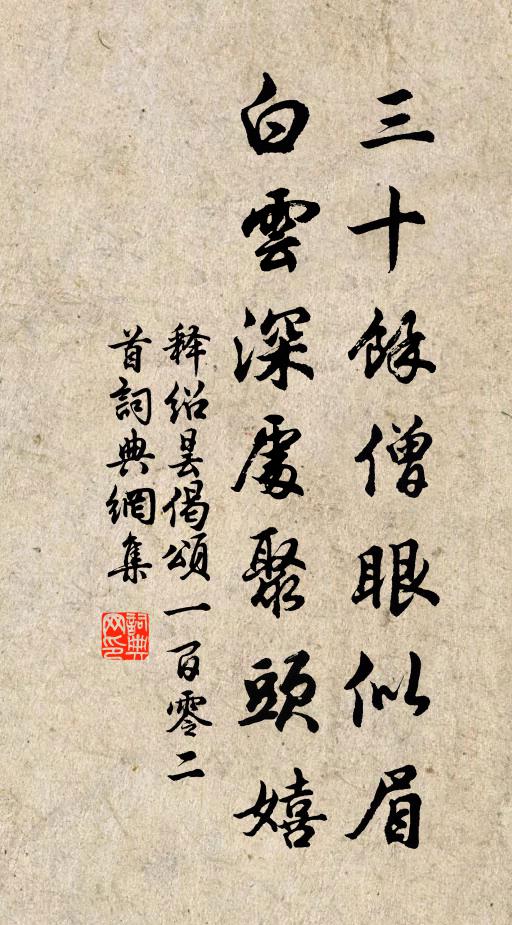 三十餘僧眼似眉
白雲深處聚頭嬉
释绍昙偈頌一百零二
首詞典網集
詞典网印